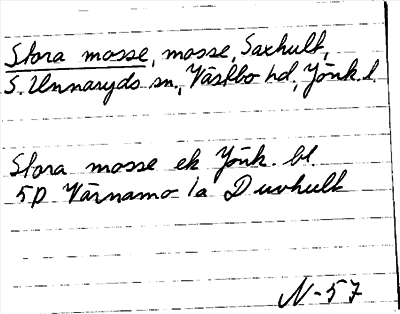 Stora mosse, mosse, Saxhult,
S. Unnaryds sn., Västbo hd, Jönk. l.
Stora mosse ek Jönk. bl.
5D Värnamo 1a Duvhult
N-57